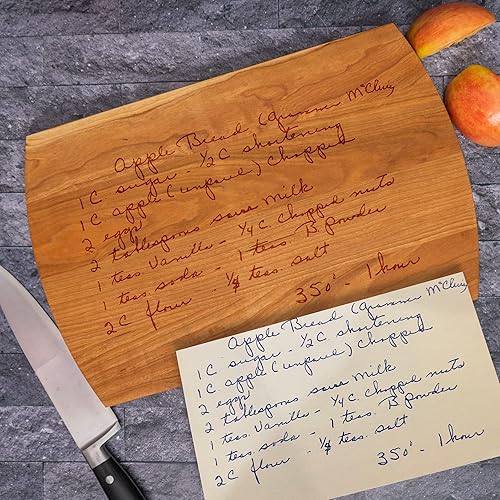 Apple Bread (grammer McCluy)
1C sugar - 1/2C shortening
1C apple (unpared) chopped
2 eggs
2 tablespoons sour milk
1 teas. Vanilla - 1/4C. chopped nuts
1 teas. soda - 1 teas. B. powder
2C flour - teas. salt
350° - 1 hour
Apple Bread (grammer McCluy)
1C sugar - 1/2C shortening
1C apple (unpared) chopped
2 eggs
2 tablespoons sour milk
1 teas. Vanilla - 1/4C. chopped nuts
1 teas. soda - 1 teas. B. powder
2C flour - teas. salt
350° - 1 hour